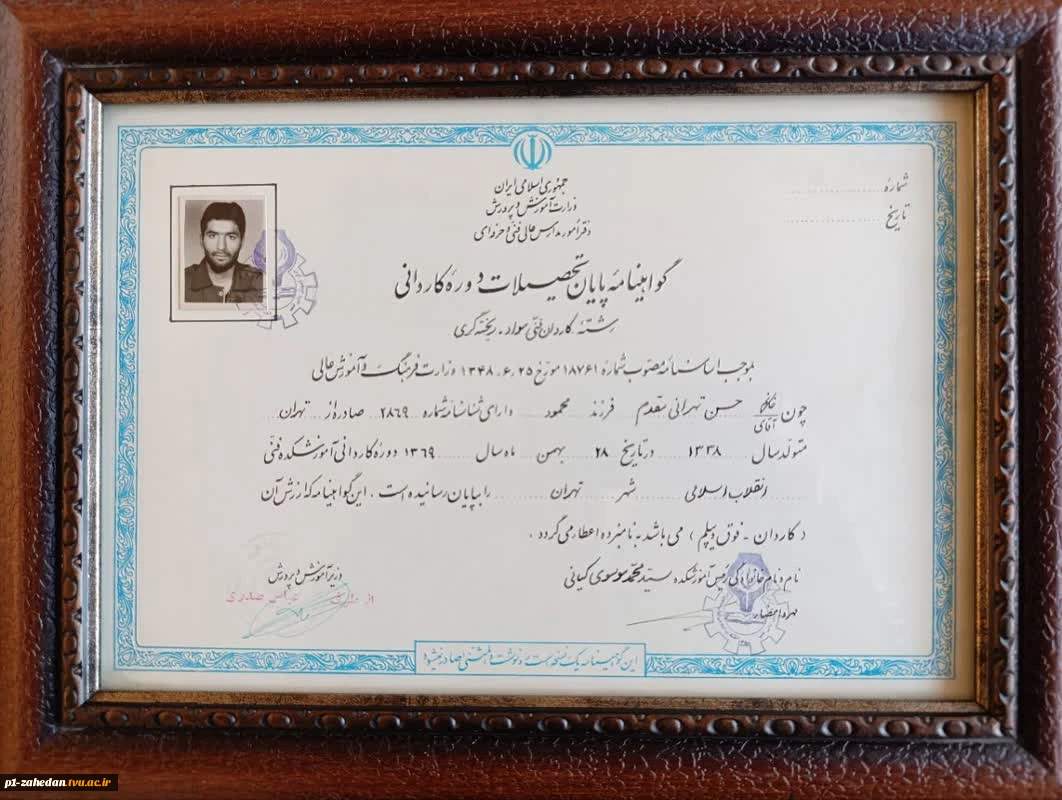 شماره
تاریخ
جمهوری اسلامی ایران
وزارت آموزش و پرورش
دفتر امور مدارس عالی فنی و حرفه‌ای
گواهینامه پایان تحصیلات دوره کاردانی
رشته کاردان فنی مواد - ریخته گری
بموجب اساسنامه مصوب شماره ۱۸۷۶۱ مورخ ۱۳۴۸،۶،۲۵ وزارت فرهنگ و آموزش عالی
چون خانم آقای حسن تهرانی مقدم فرزند محمود دارای شناسنامه شماره ۲۸۶۹ صادره از تهران
متولد سال ۱۳۳۸ در تاریخ ۲۸ بهمن ماه سال ۱۳۶۹ دوره کاردانی آموزشکده فنی
انقلاب اسلامی شهر تهران را بپایان رسانیده است، این گواهینامه که ارزش آن
(کاردان - فوق دیپلم) می باشد به نامبرده اعطا می گردد،
نام و نام خانوادگی رئیس آموزشکده سید محمد موسوی کیانی
مهر و امضاء
وزیر آموزش و پرورش
از طرف عباس صدری
این گواهینامه یک نسخه است و رونوشت یا المثنی صادر نمیشود
p1-zahedan.tvu.ac.ir